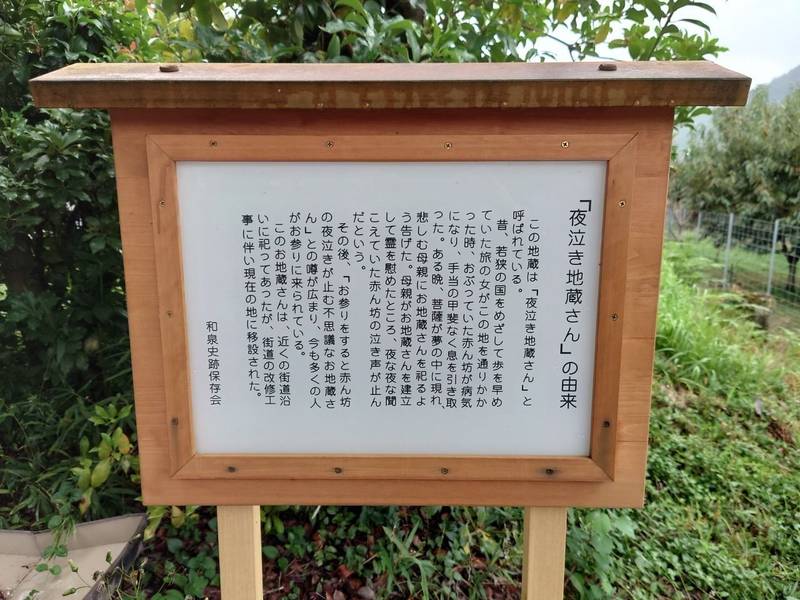 「夜泣き地蔵さん」の由来
この地蔵は「夜泣き地蔵さん」と
呼ばれている。
昔、若狭の国をめざして歩を早め
ていた旅の女がこの地を通りかか
った時、おぶっていた赤ん坊が病気
になり、手当の甲斐なく息を引き取
った。ある晩、菩薩が夢の中に現れ、
悲しむ母親にお地蔵さんを祀るよ
う告げた。母親がお地蔵さんを建立
して霊を慰めたところ、夜な夜な聞
こえていた赤ん坊の泣き声が止ん
だという。
その後、「お参りをすると赤ん坊
の夜泣きが止む不思議なお地蔵さ
ん」との噂が広まり、今も多くの人
がお参りに来られている。
このお地蔵さんは、近くの街道沿
いに祀ってあったが、街道の改修工
事に伴い現在の地に移設された。
和泉史跡保存会